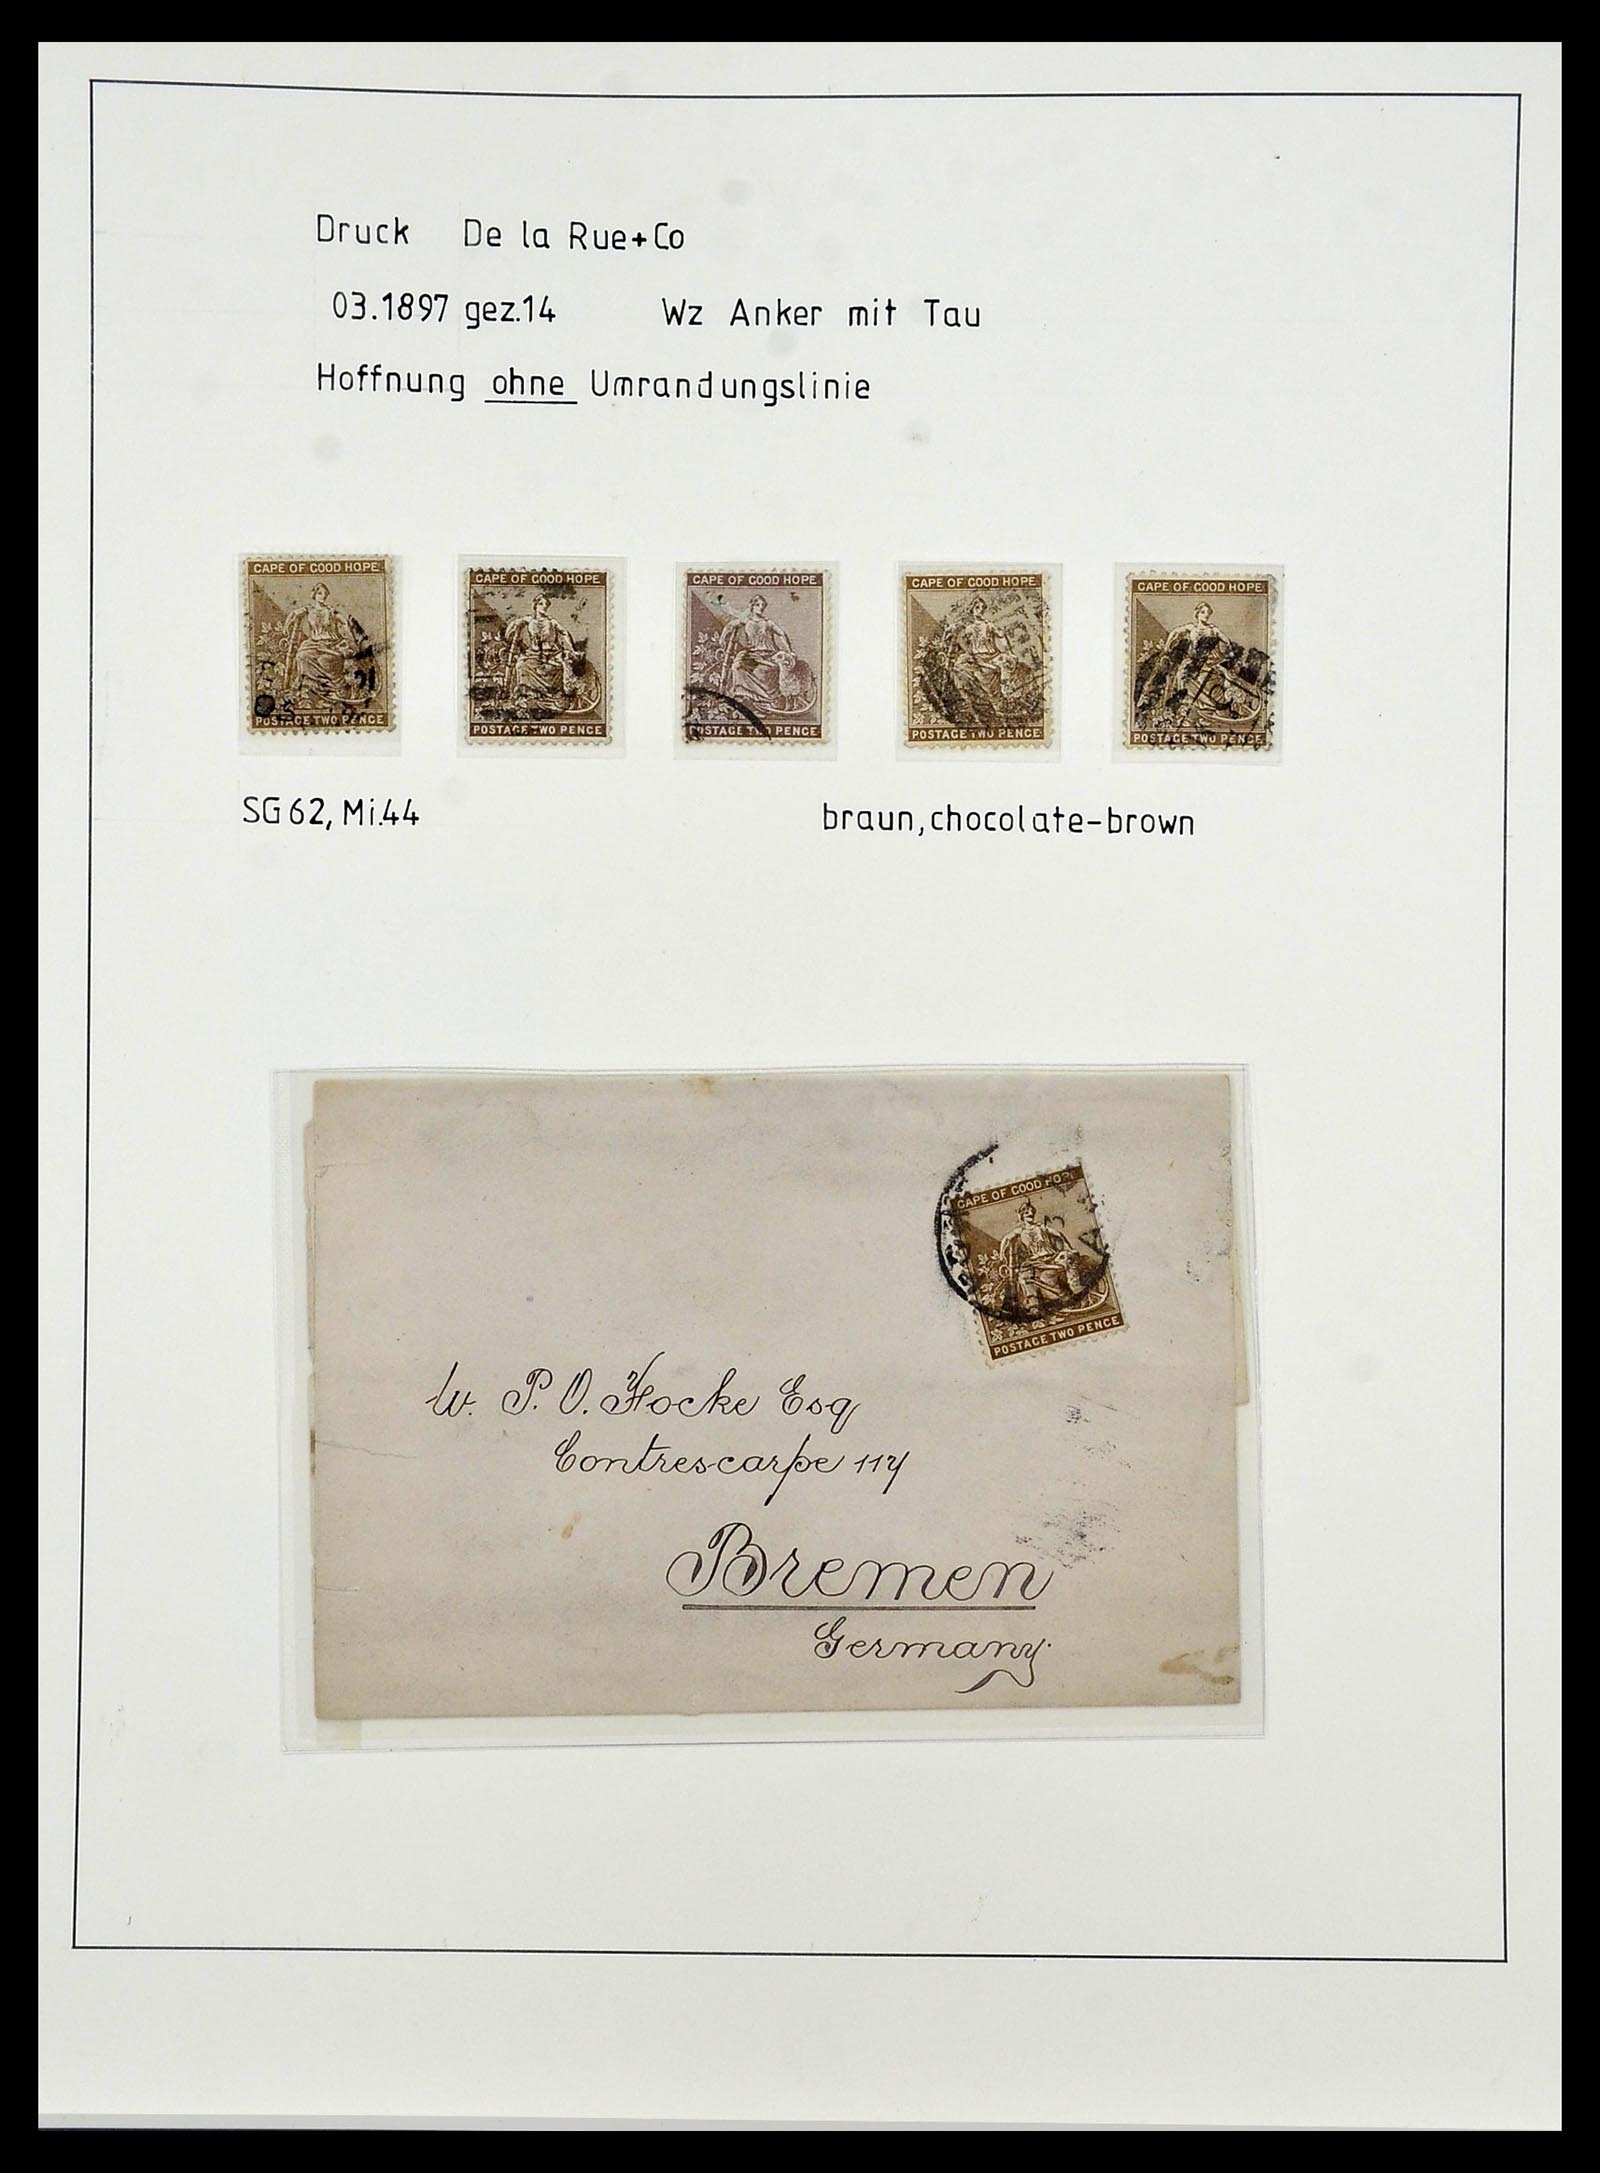 Druck De la Rue+Co
03.1897 gez.14 Wz Anker mit Tau
Hoffnung ohne Umrandungslinie
CAPE OF GOOD HOPE
POSTAGE TWO PENCE
CAPE OF GOOD HOPE
POSTAGE TWO PENCE
CAPE OF GOOD HOPE
POSTAGE TWO PENCE
CAPE OF GOOD HOPE
POSTAGE TWO PENCE
CAPE OF GOOD HOPE
POSTAGE TWO PENCE
SG 62, Mi.44 braun, chocolate-brown
CAPE OF GOOD HOPE
POSTAGE TWO PENCE
W. P. O. Focke Esq
Contrescarpe 117
Bremen
Germany.